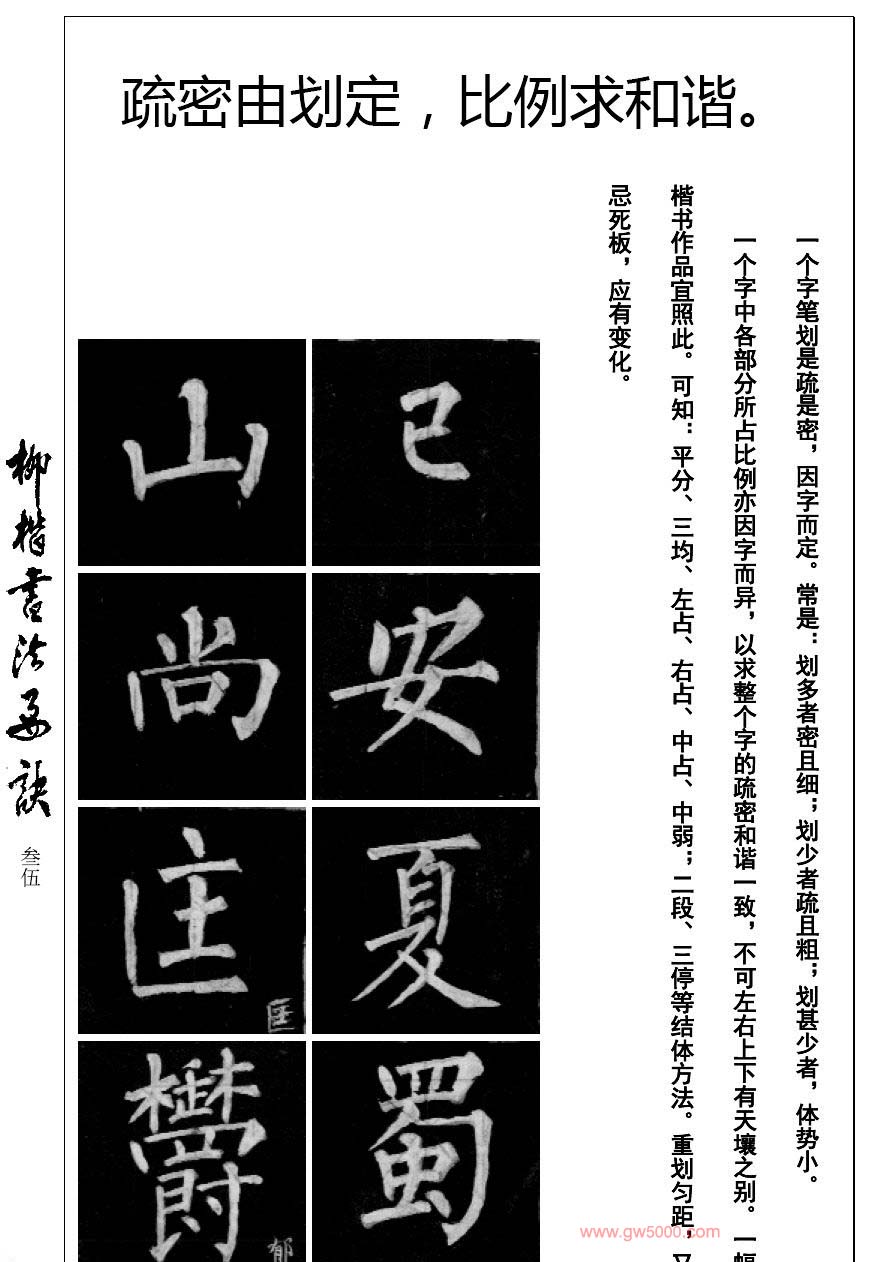 疏密由划定，比例求和谐。
一个字笔划是疏是密，因字而定。常是：划多者密且细；划少者疏且粗；划甚少者，体势小。
一个字中各部分所占比例亦因字而异，以求整个字的疏密和谐一致，不可左右上下有天壤之别。一幅
楷书作品宜照此。可知：平分、三均、左占、右占、中占、中弱；二段、三停等结体方法。重划匀距，又
忌死板，应有变化。
已
山
安
尚
夏
匡
匡
蜀
郁
柳楷書法要訣
叁伍
www.gw5000.com